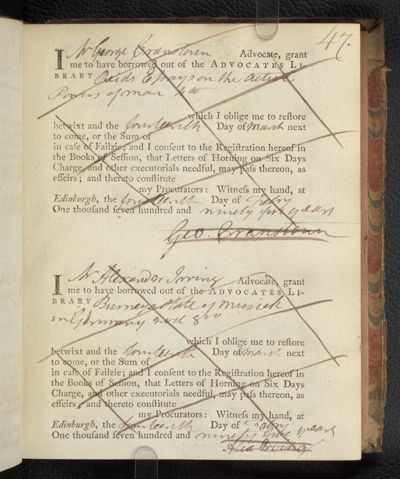 47.
I Mr George Cranstoun Advocate, grant
me to have borrowed out of the ADVOCATES LI-
BRARY Reids Essays on the Active
Powers of man 4to
which I oblige me to reſtore
betwixt and the fourteenth Day of March next
to come, or the Sum of
in caſe of Failzie; and I conſent to the Regiſtration hereof in
the Books of Seſſion, that Letters of Horning on Six Days
Charge, and other executorials needful, may paſs thereon, as
effeirs; and thereto conſtitute
my Procurators: Witneſs my hand, at
Edinburgh, the fourteenth Day of Febry
One thouſand ſeven hundred and ninety five years
Geo. Cranstoun
I Mr Alexander Irving Advocate, grant
me to have borrowed out of the ADVOCATES LI-
BRARY Burneys State of Musick
in Germany 8vo
which I oblige me to reſtore
betwixt and the fourteenth Day of March next
to come, or the Sum of
in caſe of Failzie; and I conſent to the Regiſtration hereof in
the Books of Seſſion, that Letters of Horning on Six Days
Charge, and other executorials needful, may paſs thereon, as
effeirs; and thereto conſtitute
my Procurators: Witneſs my hand, at
Edinburgh, the fourteenth Day of Febry
One thouſand ſeven hundred and ninety five years
Alex Irving